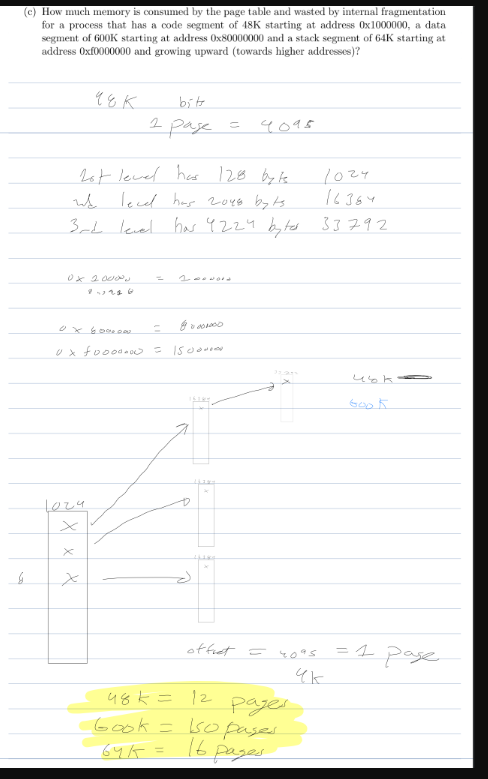 (c) How much memory is consumed by the page table and wasted by internal fragmentation
for a process that has a code segment of 48K starting at address 0x1000000, a data
segment of 600K starting at address 0x80000000 and a stack segment of 64K starting at
address 0xf0000000 and growing upward (towards higher addresses)?
48K bits
1 page = 4095
1st level has 128 byts 1024
level has 2048 byts 16384
3rd level has 4224 bytes 33792
=
=
0 x f0000000 = 15000000
x
48K
600K
1024
x
x
8 x
offset = 4095 = 1 page
4k
48k = 12 pages
600k = 150 pages
64k = 16 pages